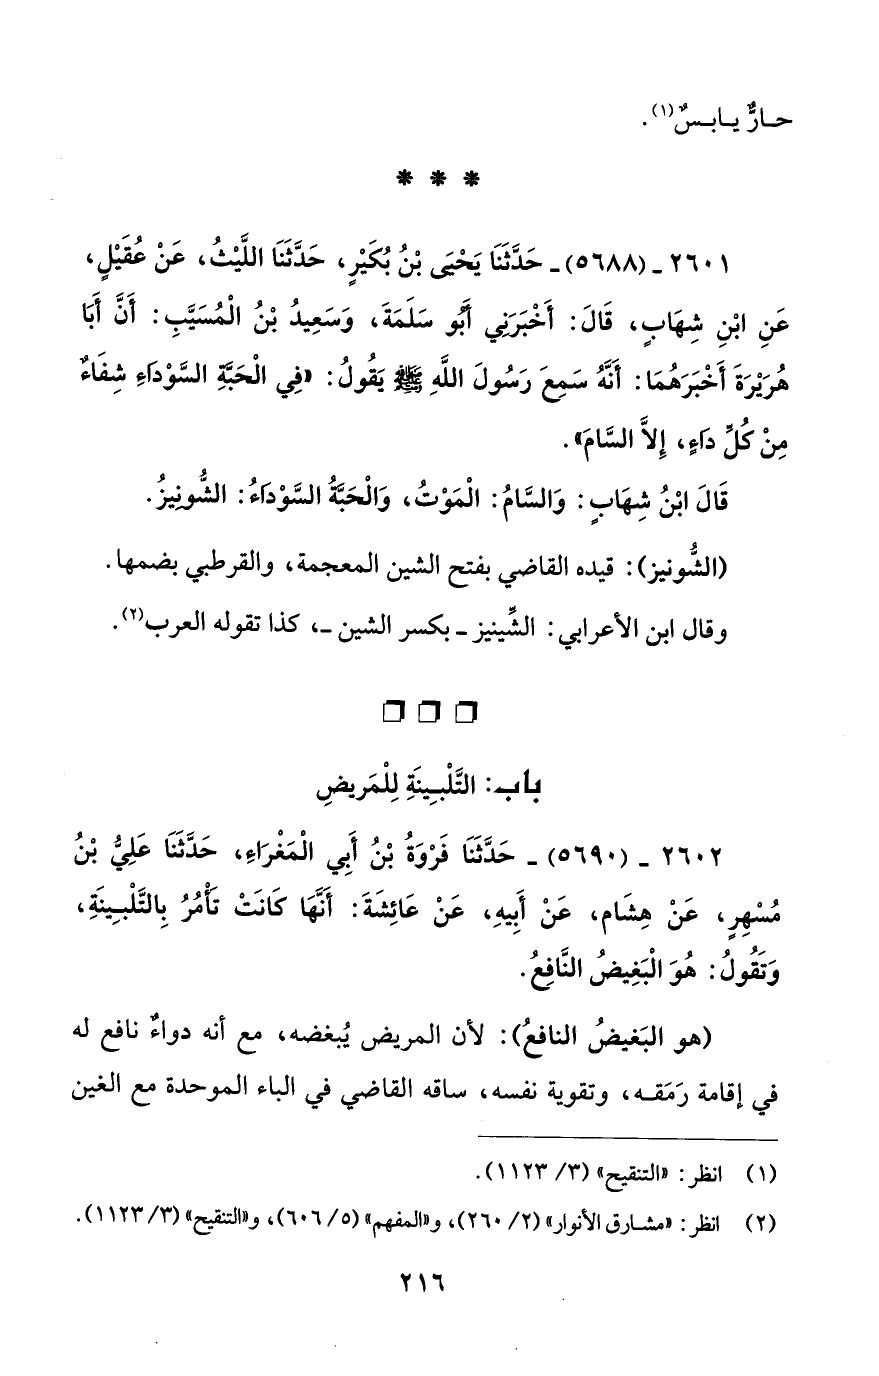 حـارٌّ يـابـسٌ(١).
* * *
٢٦٠١ ـ (٥٦٨٨) ـ حَدَّثَنَا يَحْيَى بْنُ بُكَيْرٍ، حَدَّثَنَا اللَّيْثُ، عَنْ عُقَيْلٍ،
عَنِ ابْنِ شِهَابٍ، قَالَ: أَخْبَرَنِي أَبُو سَلَمَةَ، وَسَعِيدُ بْنُ الْمُسَيَّبِ: أَنَّ أَبَا
هُرَيْرَةَ أَخْبَرَهُمَا: أَنَّهُ سَمِعَ رَسُولَ اللَّهِ ﷺ يَقُولُ: «فِي الْحَبَّةِ السَّوْدَاءِ شِفَاءٌ
مِنْ كُلِّ دَاءٍ، إِلاَّ السَّامَ».
قَالَ ابْنُ شِهَابٍ: وَالسَّامُ: الْمَوْتُ، وَالْحَبَّةُ السَّوْدَاءُ: الشُّونِيزُ.
(الشُّونيز): قيده القاضي بفتح الشين المعجمة، والقرطبي بضمها.
وقال ابن الأعرابي: الشِّينيز ـ بكسر الشين ـ، كذا تقوله العرب(٢).
❒ ❒ ❒
باب: التَّلْبِينَةِ لِلْمَريضِ
٢٦٠٢ ـ (٥٦٩٠) ـ حَدَّثَنَا فَرْوَةُ بْنُ أَبِي الْمَغْرَاءِ، حَدَّثَنَا عَلِيُّ بْنُ
مُسْهِرٍ، عَنْ هِشَام، عَنْ أَبِيهِ، عَنْ عَائِشَةَ: أَنَّهَا كَانَتْ تَأْمُرُ بِالتَّلْبِينَةِ،
وَتَقُولُ: هُوَ الْبَغِيضُ النَّافِعُ.
(هو البَغيضُ النافعُ): لأن المريض يُبغضه، مع أنه دواءٌ نافع له
في إقامة رَمَقـه، وتقوية نفسه، ساقه القاضي في الباء الموحدة مع الغين
(١) انظر: «التنقيح» (٣/ ١١٢٣).
(٢) انظر: «مشارق الأنوار» (٢/ ٢٦٠)، و«المفهم» (٥/ ٦٠٦)، و«التنقيح» (٣/ ١١٢٣).
٢١٦